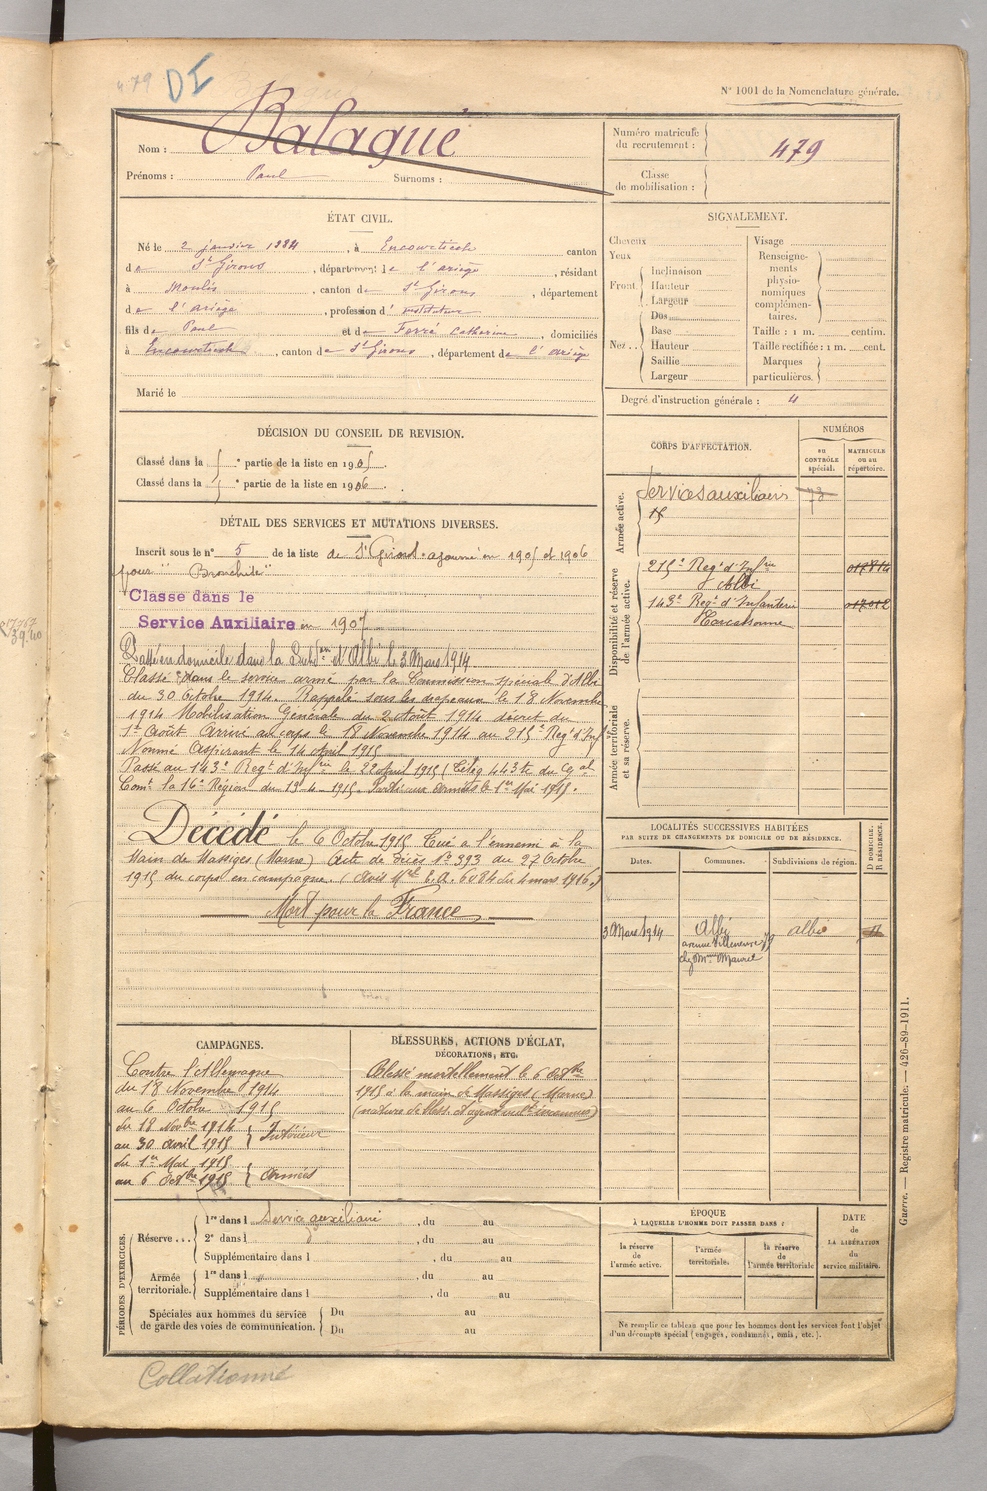 479 DI
N° 1001 de la Nomenclature générale.
Nom : Balagué
Prénoms : Paul Surnoms :
Numéro matricule du recrutement : 479
Classe de mobilisation :
ÉTAT CIVIL.
Né le 2 janvier 1884, à Encourtiech canton
de St Girons, département de l'ariège, résidant
à Moulis, canton de St Girons, département
de l'ariège, profession d'instituteur
fils de Paul et de Ferré Catherine, domiciliés
à Encourtiech, canton de St Girons, département de l'ariège
Marié le
SIGNALEMENT.
Cheveux
Yeux
Front Inclinaison
Hauteur
Largeur
Nez Dos
Base
Hauteur
Saillie
Largeur
Visage
Renseigne-
ments
physio-
nomiques
complémen-
taires.
Taille : 1 m. centim.
Taille rectifiée : 1 m. cent.
Marques
particulières.
Degré d'instruction générale : 4
DÉCISION DU CONSEIL DE REVISION.
Classé dans la e partie de la liste en 1905
Classé dans la e partie de la liste en 1906
DÉTAIL DES SERVICES ET MUTATIONS DIVERSES.
Inscrit sous le n° 5 de la liste de St Girons. ajourné en 1905 et 1906
pour "Bronchite"
Classé dans le
Service Auxiliaire en 1907
Passé en domicile dans la Subd.on d'Albi le 3 Mars 1914
Classé dans le service armé par la Commission spéciale d'Albi
du 30 Octobre 1914. Rappelé sous les drapeaux le 18 Novembre
1914 Mobilisation Générale du 2 Août 1914 décret du
1er Août Arrivé au corps le 18 Novembre 1914 au 215e Regt d'Inf
Nommé Aspirant le 14 April 1915
Passé au 143e Regt d'Infrie le 22 April 1915 (Télég 443 du Gal
Comt la 16e Région du 19-4-1915. Parti aux armées le 1er Mai 1915.
Décédé le 6 Octobre 1915 Tué à l'ennemi à la
Main de Massiges (Marne) Acte de Décès N° 393 du 27 Octobre
1915 du corps en campagne. (Avis Mel E.A. 6084 du 4 mars 1916.)
Mort pour la France
CORPS D'AFFECTATION.
NUMÉROS
au CONTRÔLE spécial.
MATRICULE ou au répertoire.
Armée active.
Services auxiliaires 73
Disponibilité et réserve de l'armée active.
215e Regt d'Infrie 017814
Albi
143e Regt d'Infanterie 017012
Carcassonne
Armée territoriale et sa réserve.
LOCALITÉS SUCCESSIVES HABITÉES
PAR SUITE DE CHANGEMENTS DE DOMICILE OU DE RÉSIDENCE.
Dates. Communes. Subdivisions de région. D DOMICILE. R RÉSIDENCE.
3 Mars 1914 Albi albi
avenue Villeneuve
CAMPAGNES.
Contre l'Allemagne
du 18 Novembre 1914
au 6 Octobre 1915
du 18 Novbre 1914
au 30 avril 1915 Intérieur
du 1er Mai 1915
au 6 Octbre 1915 Armées
BLESSURES, ACTIONS D'ÉCLAT,
DÉCORATIONS, ETC.
Blessé mortellement le 6 Octbre
1915 à la main de Massiges (Marne)
PÉRIODES D'EXERCICES.
Réserve... 1re dans l Service auxiliaire, du au
2e dans l, du au
Supplémentaire dans l, du au
Armée territoriale. 1re dans l, du au
Supplémentaire dans l, du au
Spéciales aux hommes du service
de garde des voies de communication.
Du au
Du au
ÉPOQUE
À LAQUELLE L'HOMME DOIT PASSER DANS :
la réserve de l'armée active.
l'armée territoriale.
la réserve de l'armée territoriale
DATE de LA LIBÉRATION du service militaire.
Ne remplir ce tableau que pour les hommes dont les services font l'objet
d'un décompte spécial (engagés, condamnés, omis, etc.).
Guerre. — Registre matricule. — 426-89-1911.
Collationné